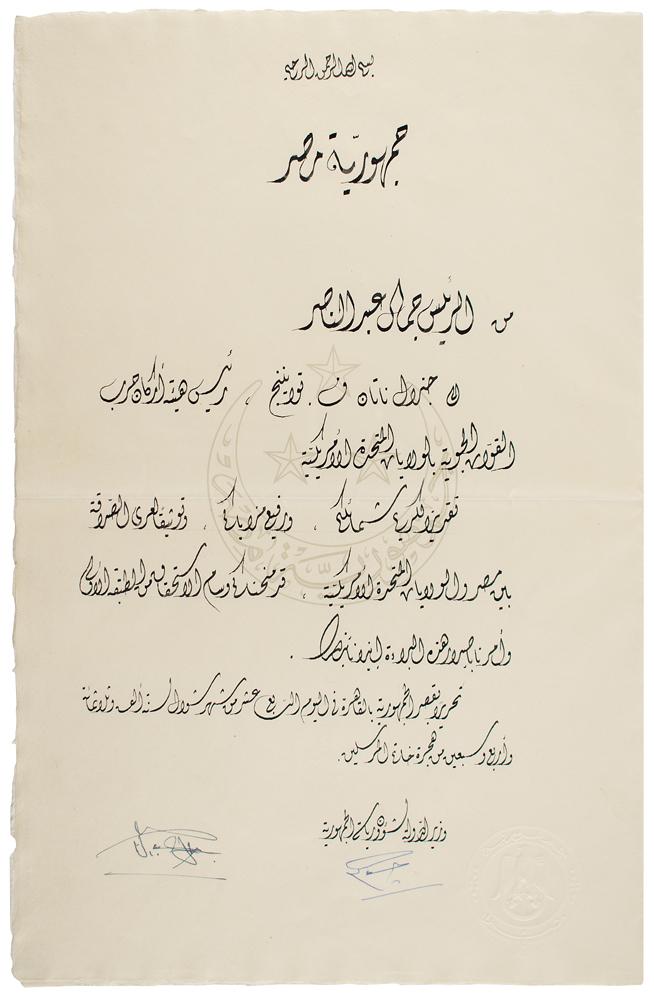 بسم الله الرحمن الرحيم
جمهورية مصر
من الرئيس جمال عبد الناصر
إلى جنرال ناتان ف. تواينينج ، رئيس هيئة أركان حرب
القوات الجوية بالولايات المتحدة الأمريكية
تقديرا لكريم شمائلكم ، ورفيع مزاياكم ، وتوثيقا لعرى الصداقة
بين مصر والولايات المتحدة الأمريكية ، قد منحناكم وسام الاستحقاق من الطبقة الأولى
وأمرنا بإصدار هذه البراءة إيذانا بذلك .
تحريرا بقصر الجمهورية بالقاهرة فى اليوم الرابع عشر من شهر شوال لسنة ألف وثلاثمائة
وأربع وسبعين من هجرة خاتم المرسلين .
وزير الدولة لشؤون رياسة الجمهورية